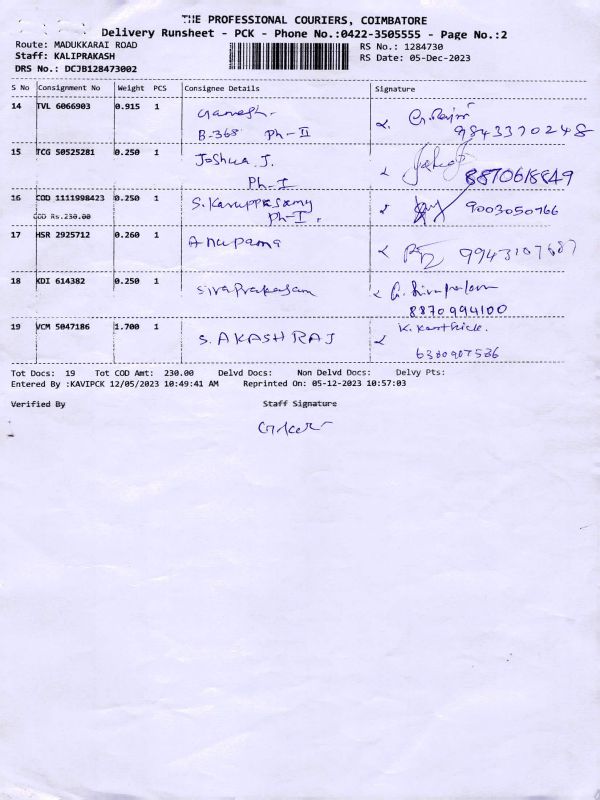 THE PROFESSIONAL COURIERS, COIMBATORE
Delivery Runsheet - PCK - Phone No.:0422-3505555 - Page No.:2
Route: MADUKKARAI ROAD
Staff: KALIPRAKASH
DRS No.: DCJB128473002
RS No.: 1284730
RS Date: 05-Dec-2023
S No Consignment No Weight PCS Consignee Details Signature
14 TVL 6066903 0.915 1 Ganesh.
B-368 Ph-II
9843370248
15 TCG 50525281 0.250 1 Joshua J.
Ph-I
8870618849
16 COD 1111998423 0.250 1 S. Karuppasamy 9003050766
COD Rs.230.00 Ph-I,
17 HSR 2925712 0.260 1 Anupama 9943107687
18 KDI 614382 0.250 1 Sivaprakasam
8870994100
19 VCM 5047186 1.700 1 S. AKASH RAJ K. Karthick.
6380907536
Tot Docs: 19 Tot COD Amt: 230.00 Delvd Docs: Non Delvd Docs: Delvy Pts:
Entered By :KAVIPCK 12/05/2023 10:49:41 AM Reprinted On: 05-12-2023 10:57:03
Verified By Staff Signature